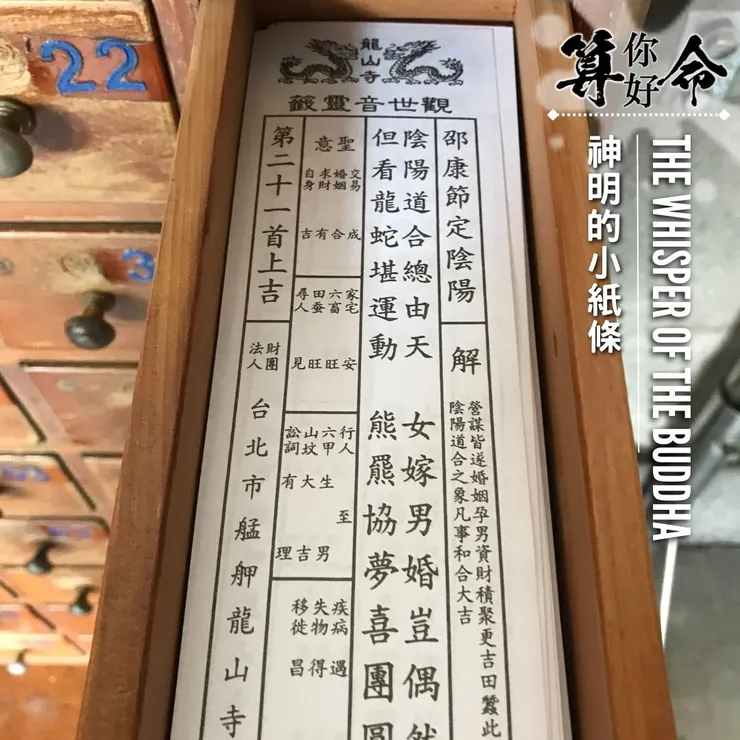 算你好命
神明的小紙條
THE WHISPER OF THE BUDDHA
22
3
龍山寺
觀世音靈籤
邵康節定陰陽
解
營謀皆遂婚姻孕男資財積聚更吉田蠶此
陰陽道合之象凡事和合大吉
陰陽道合總由天 女嫁男婚豈偶然
但看龍蛇堪運動 熊羆協夢喜團圓
聖意
交易 成
婚姻 合
求財 有
自身 吉
家宅 安
六畜 旺
田蚕 旺
尋人 見
行人 至
六甲 生男
山坟 大吉
訟詞 有理
疾病 遇
失物 得
移徙 昌
第二十一首上吉
財團法人
台北市艋舺龍山寺